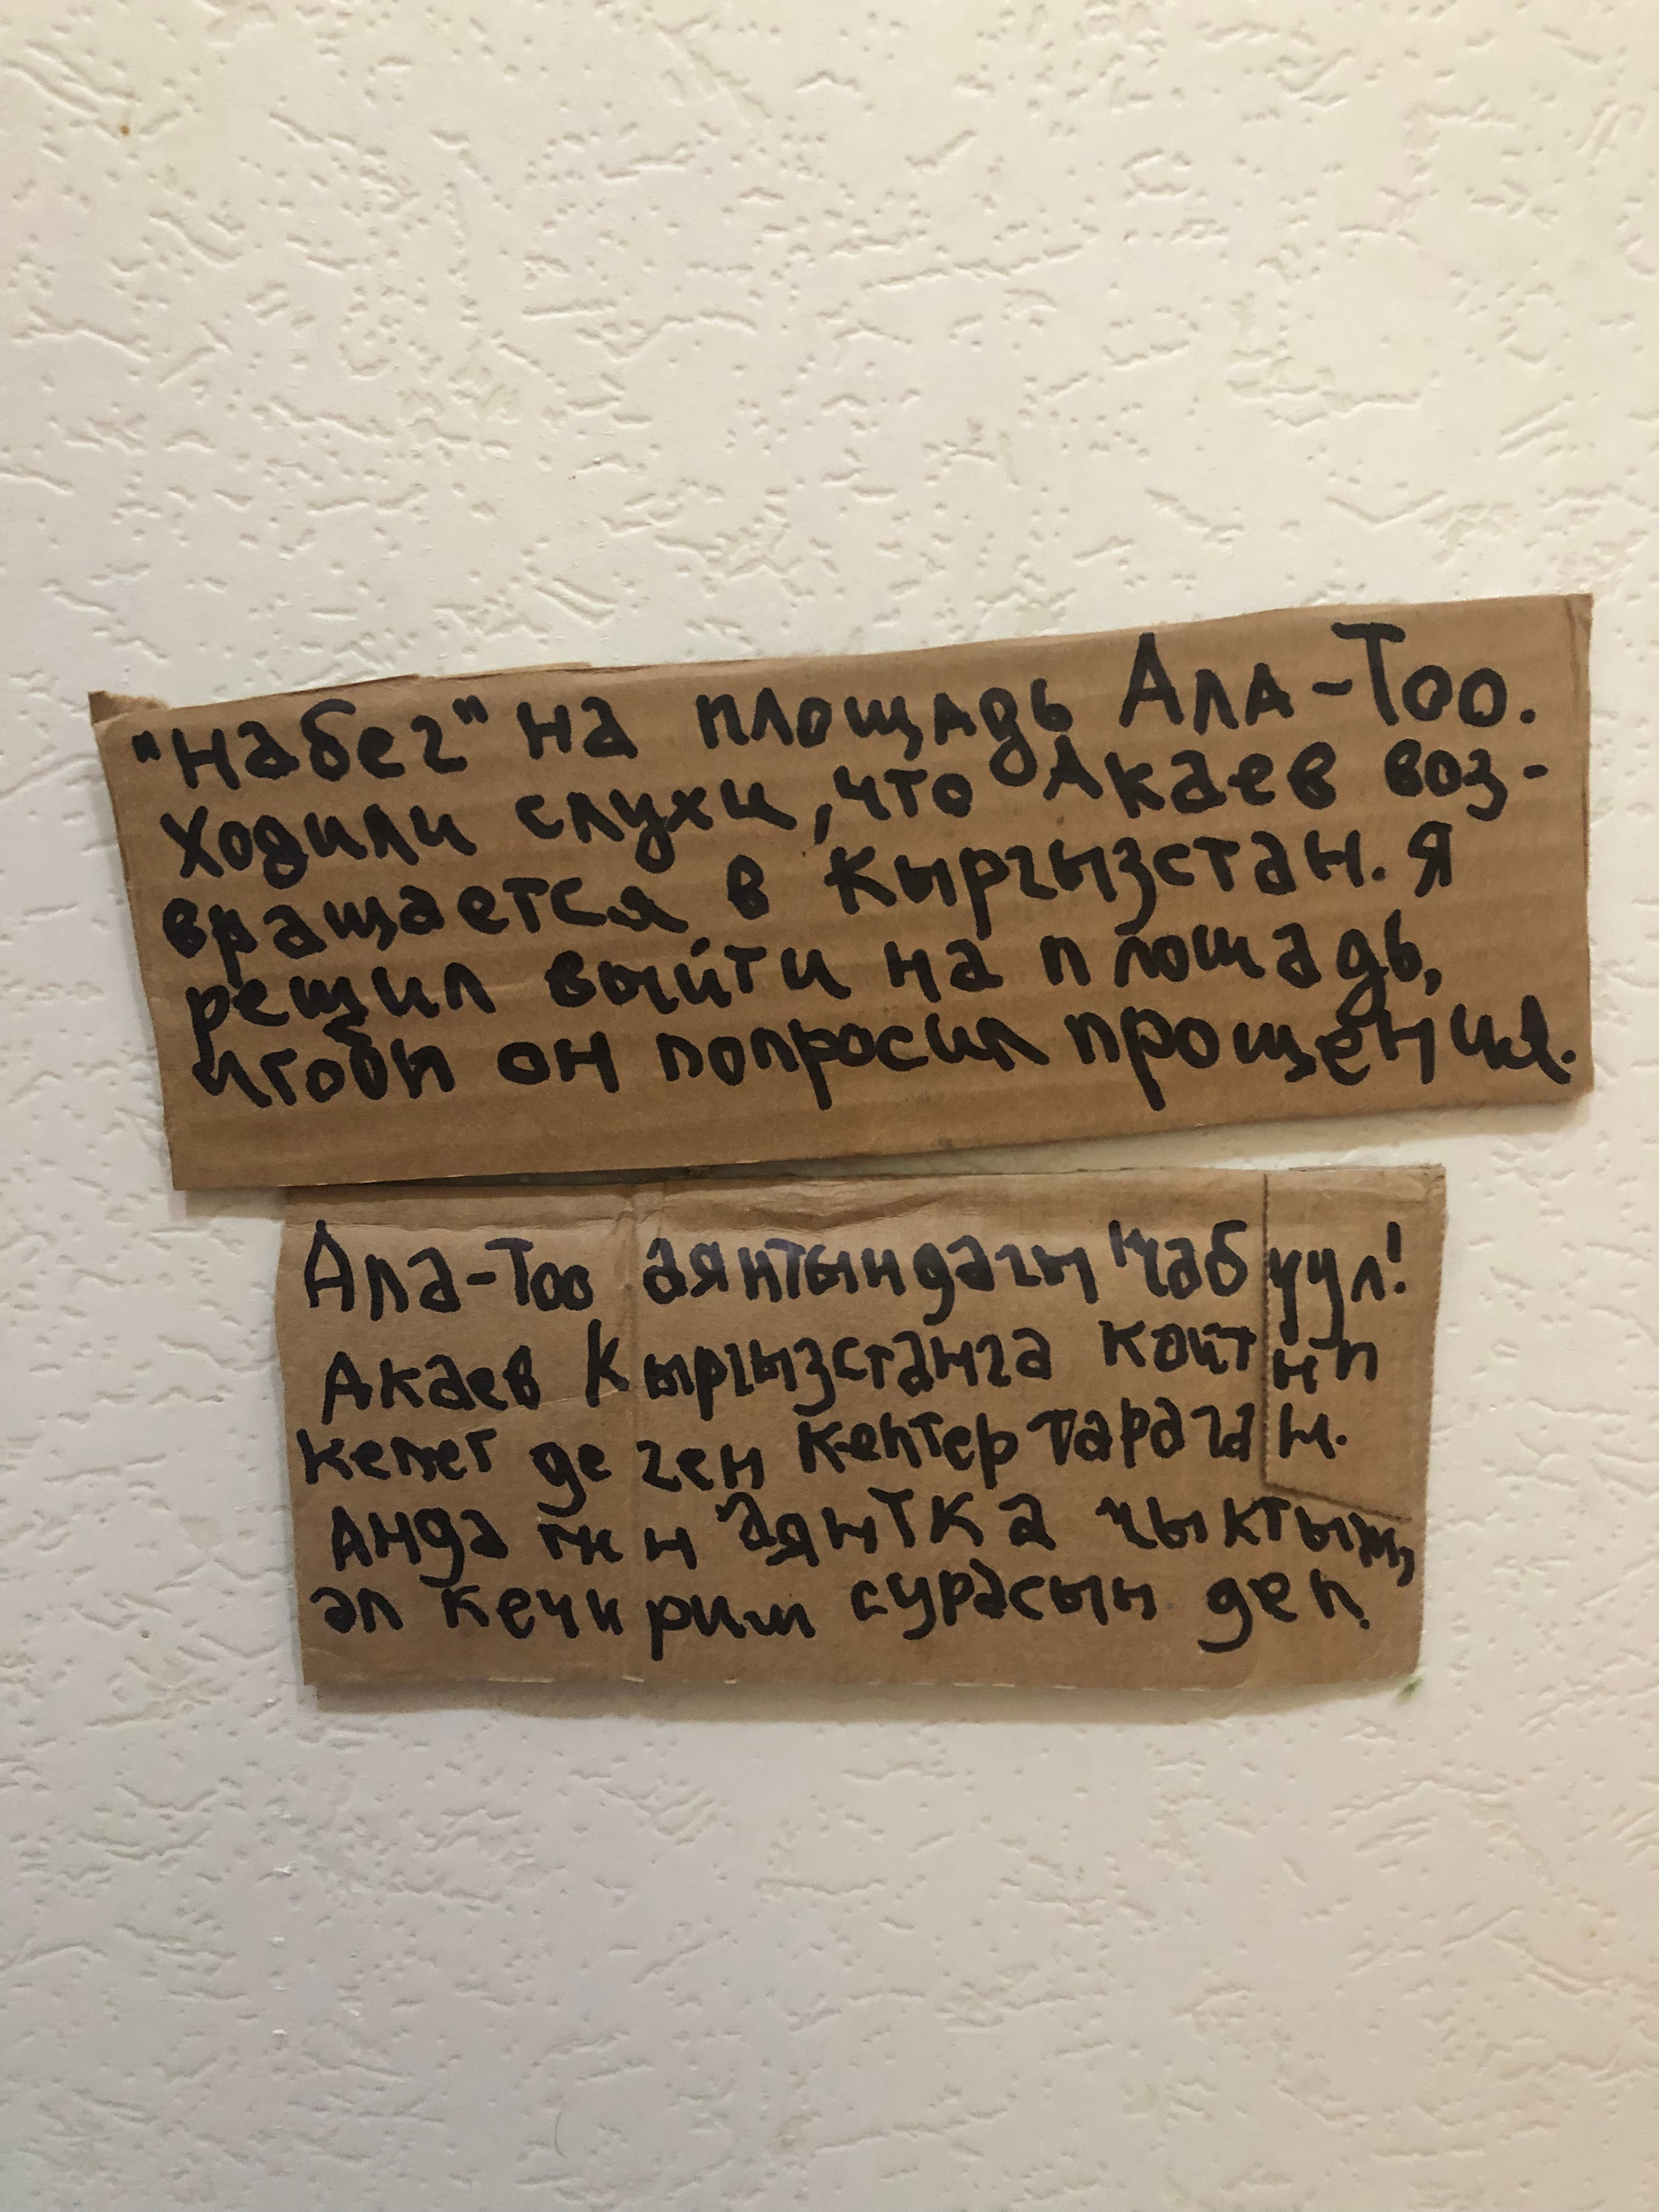 "Набег" на площадь Ала-Тоо.
Ходили слухи, что Акаев воз-
вращается в Кыргызстан. Я
решил выйти на площадь,
чтобы он попросил прощения.
Ала-Тоо аянтындагы чабуул!
Акаев Кыргызстанга кайтып
келет деген кептер тараган.
Анда мен аянтка чыктым,
ал кечирим сурасын деп.